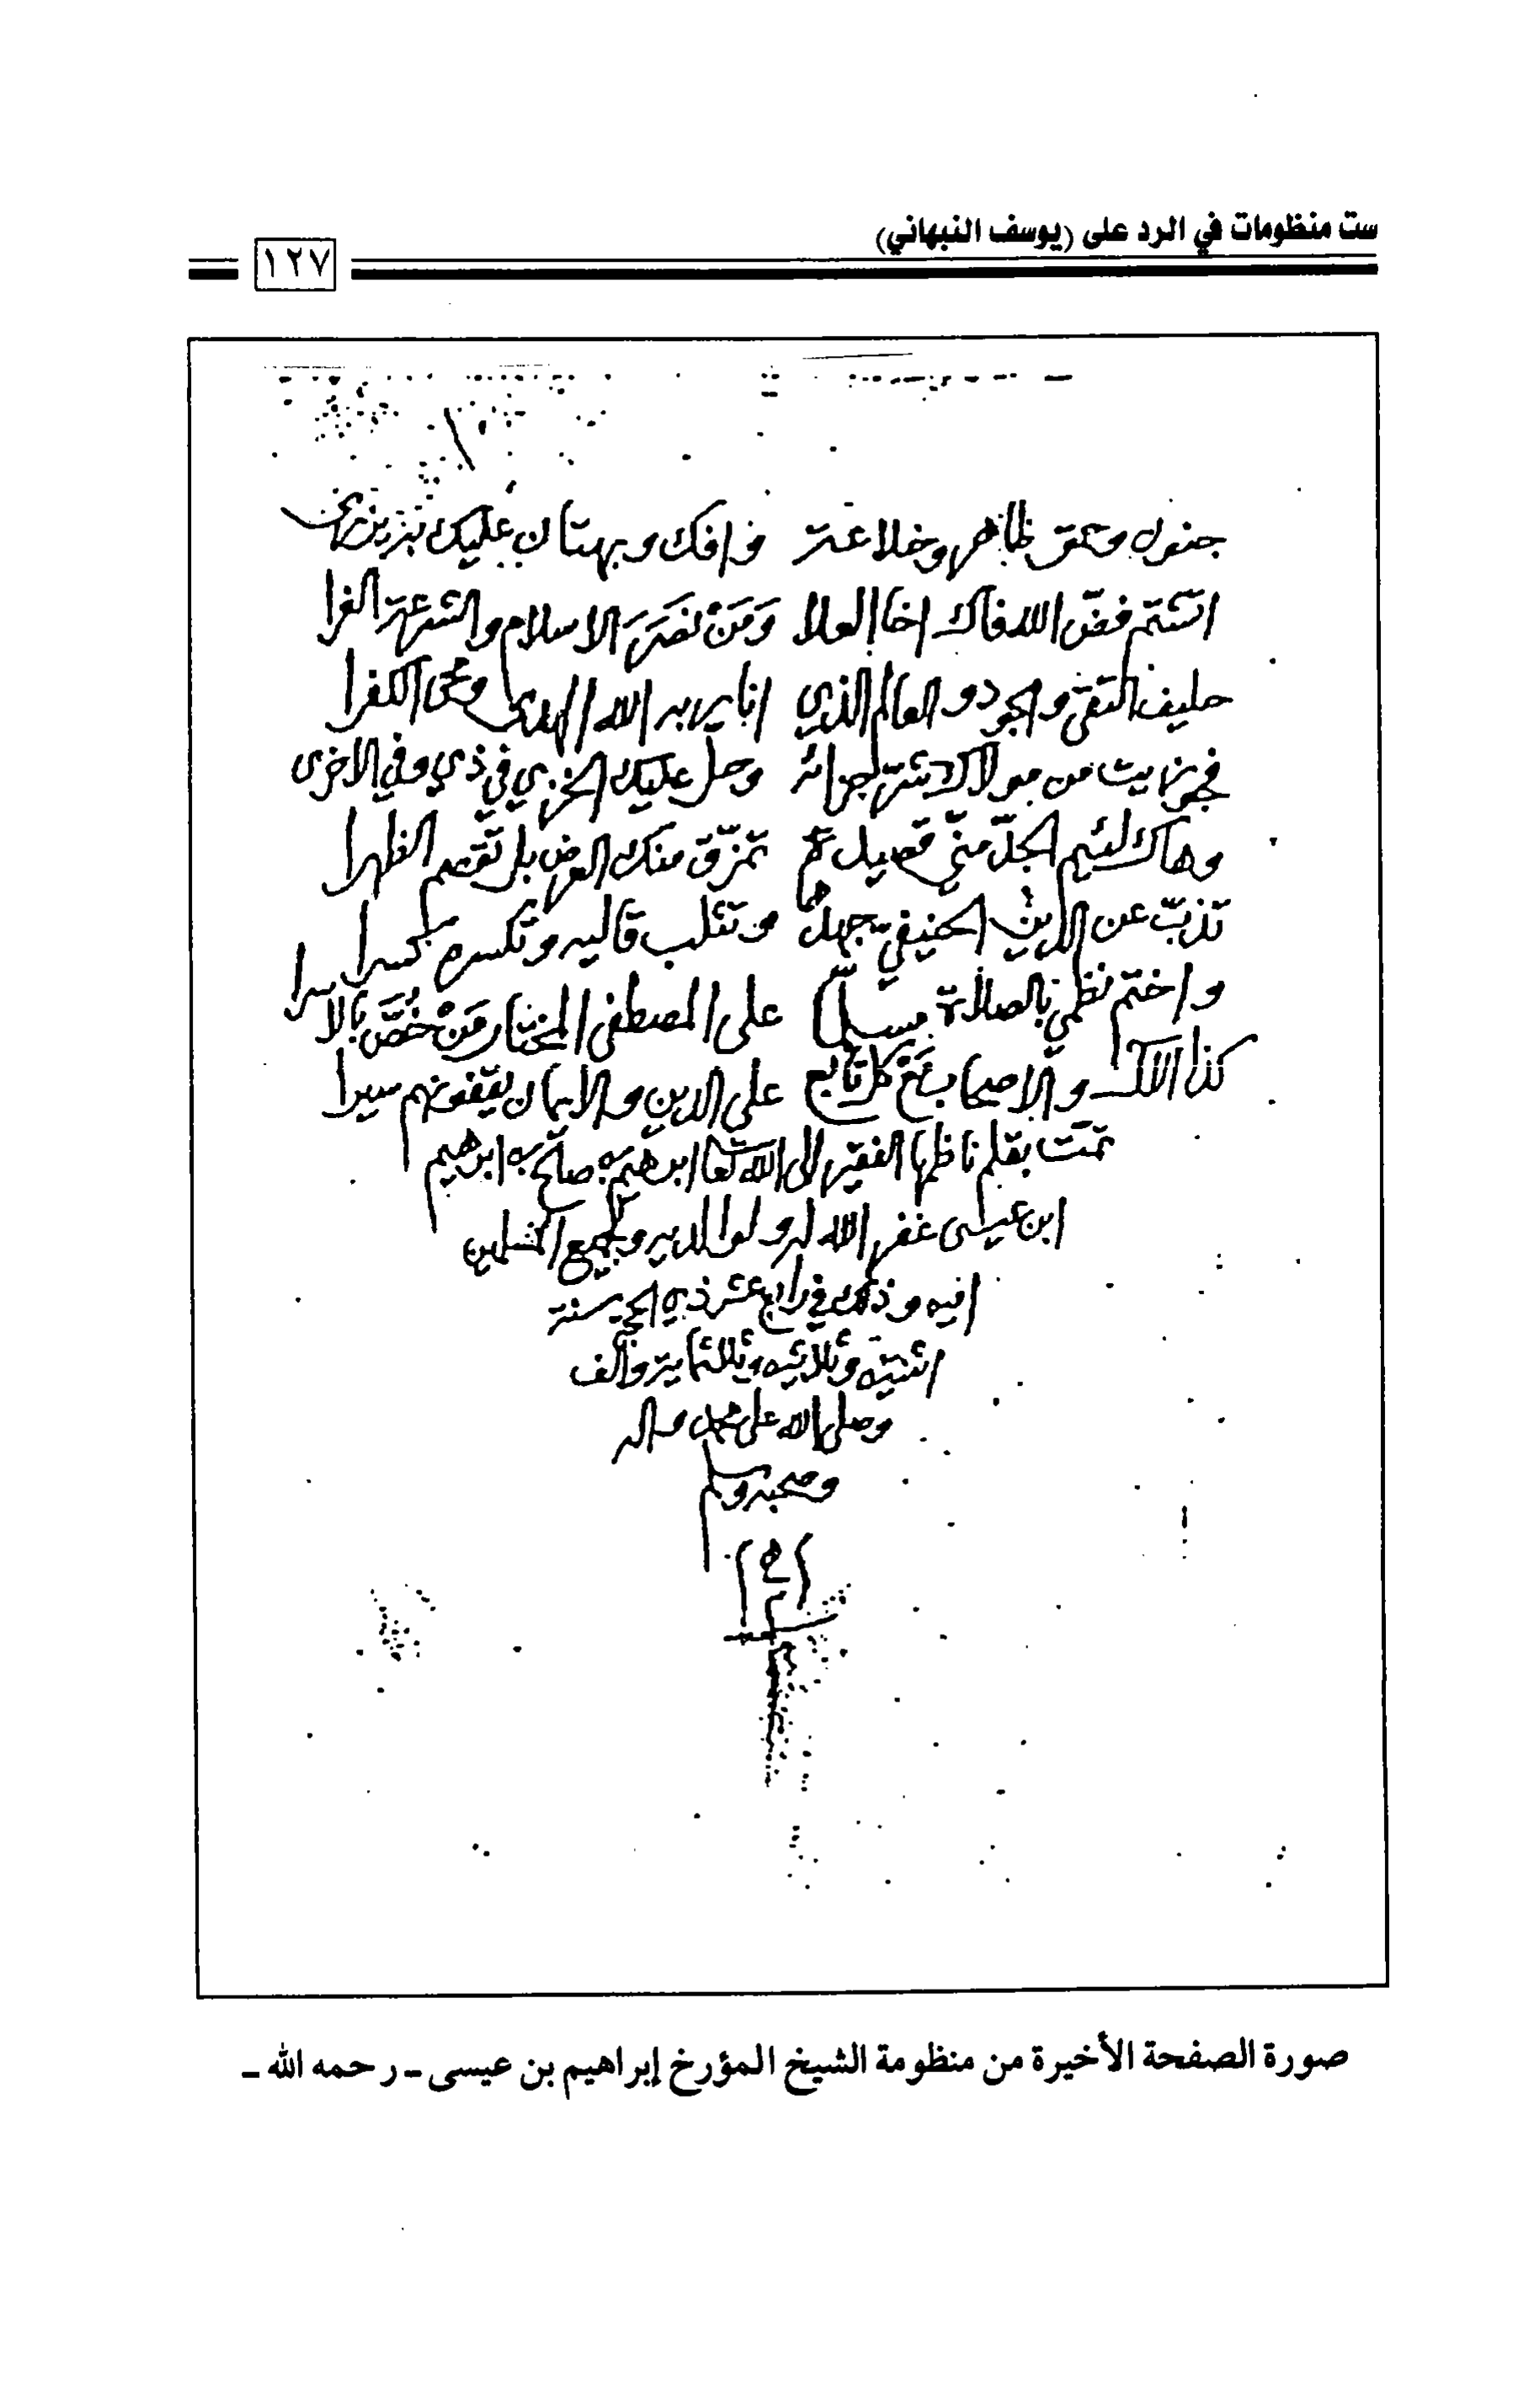 ست منظومات في الرد على (يوسف النبهاني)
١٢٧
جنون وحمق ظاهر وخلاعة وافك وبهتان عليك به
اتشتم فضّ الله فاك اخا العلا وَمَنْ نَصَرَ الاسلام والشرعة الغرا
حليف التقى والجود والعالم الذي انار به الله الهدى ومحى الكفرا
فجوزيت من مولاك شر جزائه وحل عليك الخزي في ذي وفي الاخرى
وهاك لئيم الجدّ منّي قصيدة تمزّق منك العرض بل تقصم الظهرا
تذبّ عن الدين الحنيفي جهدها وتثلب قاليه وتكسره كسرا
واختم نظمي بالصلاة مسلّما على المصطفى المختار مَنْ خُصَّ بالاسرا
كذا الآل والاصحاب مَعْ كل تابع على الدين والايمان يقفونهم سيرا
تمت بقلم ناظمها الفقير الى الله تعالى ابرهيم بن صالح بن ابرهيم
ابن عيسى غفر الله له ولوالديه ولجميع المسلمين
امين وذلك في رابع عشر ذي الحجة سنة
اثنتين وثلاثين وثلثماية والف
وصلى الله على محمد واله
وصحبه وسلم
صورة الصفحة الأخيرة من منظومة الشيخ المؤرخ إبراهيم بن عيسى ـ رحمه الله ـ